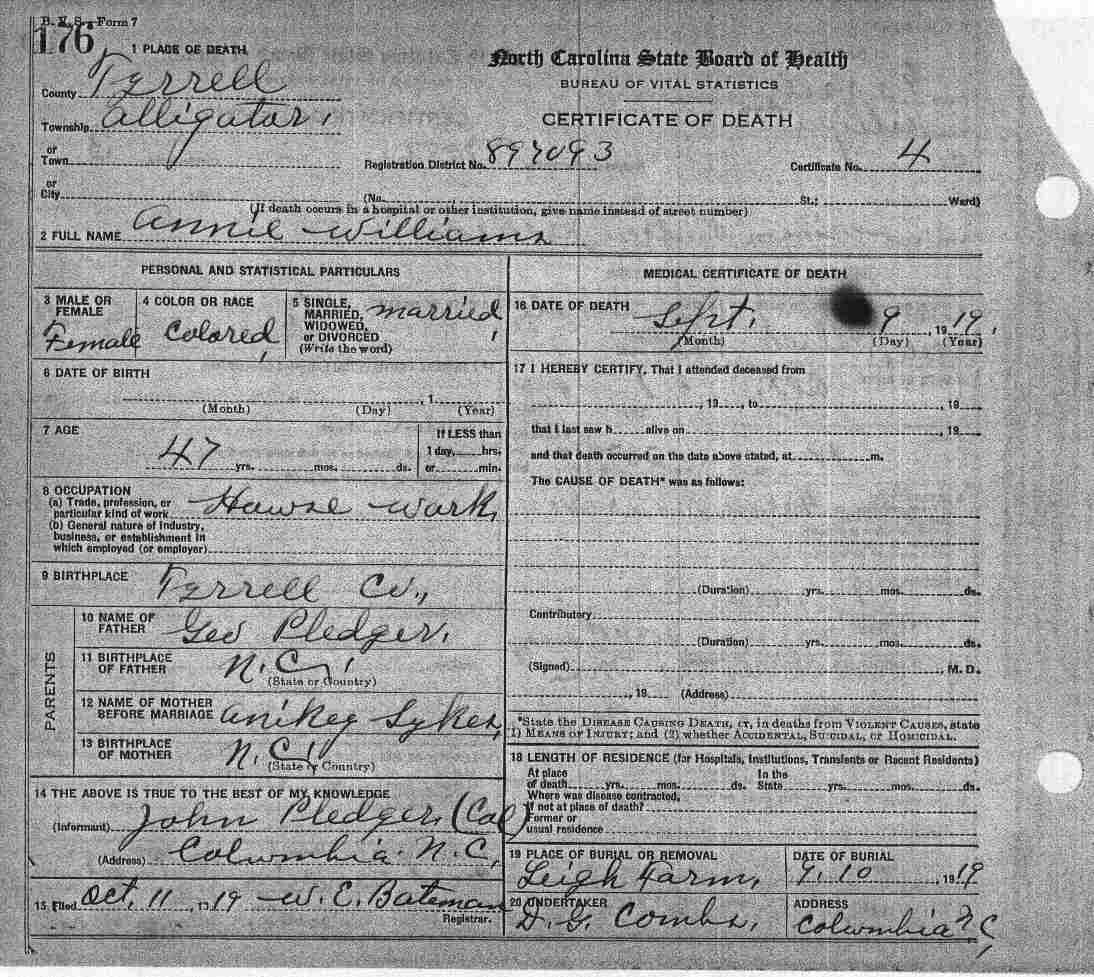 B. V. S. Form 7
176
North Carolina State Board of Health
BUREAU OF VITAL STATISTICS
CERTIFICATE OF DEATH
1 PLACE OF DEATH,
County Tyrrell
Township Alligator,
or
Town
Registration District No. 897093
Certificate No. 4
or
City (No. St.; Ward)
(If death occurs in a hospital or other institution, give name instead of street number)
2 FULL NAME Annie Williams
PERSONAL AND STATISTICAL PARTICULARS
3 MALE OR FEMALE
Female
4 COLOR OR RACE
Colored,
5 SINGLE, MARRIED, WIDOWED, or DIVORCED (Write the word)
married,
6 DATE OF BIRTH
, 1
(Month) (Day) (Year)
7 AGE
47 yrs. mos. ds.
If LESS than
1 day, hrs.
or min.
8 OCCUPATION
(a) Trade, profession, or
particular kind of work Hawse work,
(b) General nature of industry,
business, or establishment in
which employed (or employer)
9 BIRTHPLACE Tyrrell Co.,
PARENTS
10 NAME OF FATHER Geo Pledger,
11 BIRTHPLACE OF FATHER N.C,
(State or Country)
12 NAME OF MOTHER BEFORE MARRIAGE Anikey Sykes,
13 BIRTHPLACE OF MOTHER N.C,
(State or Country)
14 THE ABOVE IS TRUE TO THE BEST OF MY KNOWLEDGE
(Informant) John Pledger, (Col)
(Address) Columbia N.C,
15 Filed Oct, 11, 1919 W. E. Bateman
Registrar.
MEDICAL CERTIFICATE OF DEATH
16 DATE OF DEATH
Sept. 9, 1919,
(Month) (Day) (Year)
17 I HEREBY CERTIFY, That I attended deceased from
, 19 , to , 19
that I last saw h alive on , 19
and that death occurred on the date above stated, at m.
The CAUSE OF DEATH* was as follows:
(Duration) yrs. mos. ds.
Contributory
(Duration) yrs. mos. ds.
(Signed) , M. D.
, 19 (Address)
*State the DISEASE CAUSING DEATH, or, in deaths from VIOLENT CAUSES, state
1) MEANS OF INJURY; and (2) whether ACCIDENTAL, SUICIDAL, or HOMICIDAL.
18 LENGTH OF RESIDENCE (for Hospitals, Institutions, Transients or Recent Residents)
At place In the
of death yrs. mos. ds. State yrs. mos. ds.
Where was disease contracted,
if not at place of death?
Former or
usual residence
19 PLACE OF BURIAL OR REMOVAL
Leigh Farm,
DATE OF BURIAL
9. 10, 1919
20 UNDERTAKER
D. G. Combs,
ADDRESS
Columbia N C,